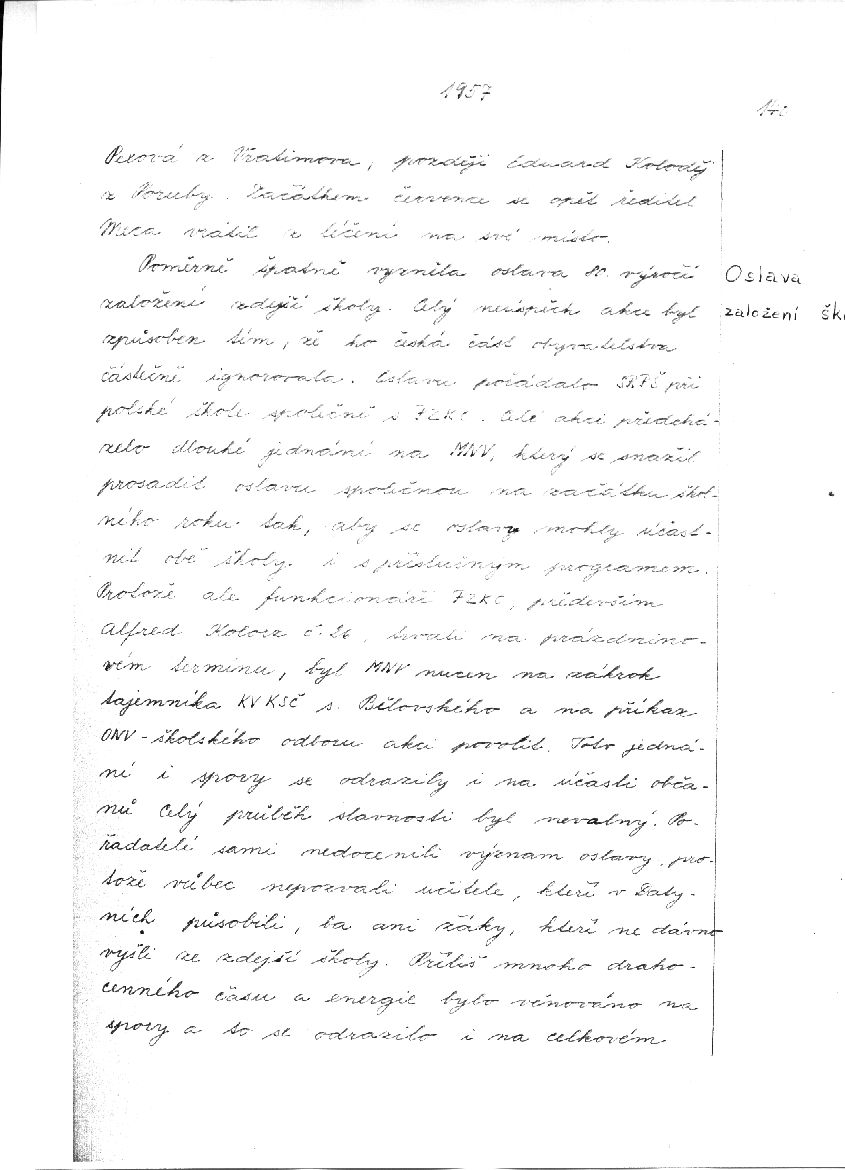 1957
140
Pexová z Vratimova, později Eduard Koloděj
z Poruby. Začátkem července se opět ředitel
Meca vrátil z léčení na své místo.
Poměrně špatně vyzněla oslava 80. výročí
Oslava
založení zdejší školy. Celý neúspěch akce byl
založení šk
způsoben tím, že ho česká část obyvatelstva
částečně ignorovala. Oslavu pořádalo SRPŠ při
polské škole společně s PZKO. Ale akci předchá-
zelo dlouhé jednání na MNV, který se snažil
prosadit oslavu společnou na začátku škol-
ního roku tak, aby se oslavy mohly účast-
nit obě školy i s příslušným programem.
Protože ale funkcionáři PZKO, především
Alfred Kolocz č. 26, trvali na prázdnino-
vém termínu, byl MNV nucen na zákrok
tajemníka KV KSČ s. Bělovského a na příkaz
ONV-školského odboru akci povolit. Toto jedná-
ní i spory se odrazily i na účasti obča-
nů Celý průběh slavnosti byl nevalný. Po-
řadatelé sami nedocenili význam oslavy, pro-
tože vůbec nepozvali učitele, kteří v Daty-
ních působili, ba ani žáky, kteří ne dávno
vyšli ze zdejší školy. Příliš mnoho draho-
cenného času a energie bylo věnováno na
spory a to se odrazilo i na celkovém